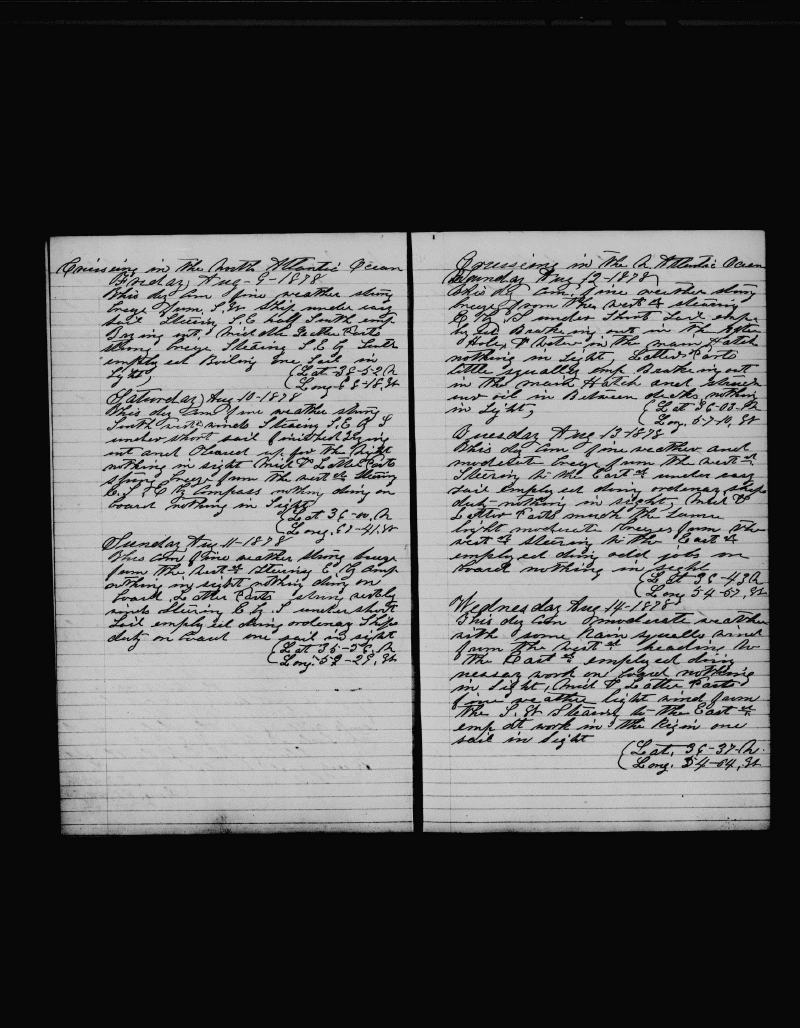 Cruiseing in the North Atlantic Ocean
Friday, Aug - 9 - 1878
This day Com fine weather strong
breze from S. W. Ship under easy
sail Steering S. E. half South emp
Drying out, Middle & Latter Parts
strong breze Steering S. E. & South
employed Boiling one Sail in
Sight, (Lat 38-52, N
(Long 68-18, W
Saturday, Aug 10 - 1878
This day Com fine weather strong
South winds Steering S. E. & S
under short sail finished trying
out and Cleared up for the Night
nothing in sight Mid & Latter Parts
strong breze from the westd Steering
by Compass nothing doing on
board nothing in Sight
(Lat 36- N
(Long. 61-41, W
Sunday Aug. 11 - 1878
This Com fine weather strong breze
from the Westd Steering E. by Comp
nothing in sight nothing doing on
board. Latter Parts strong
winds Steering E. by S under short
Sail employed doing ordenary Ships
duty on board one sail in sight
(Lat 35-56, N
(Long. 59-28, W
Cruseing in the N. Atlantic Ocean
Monday Aug. 12 - 1878
This day Com, fine weather strong
breze from the westd steering
E. by S under Short Sail emp
Breaking out in the After
Hole, & in the main Hatch
nothing in Sight, Latter Parts
little squally emp. Breaking out
in the main Hatch and
oil in Between decks nothing
in Sight, (Lat 36-03, N
(Long. 57-10, W
Tuesday Aug 13 - 1878
This day Com fine weather and
moderate breze from the westd
Steering to the Eastd under easy
sail employed doing ordenary ships
duty nothing in sight, Mid &
Latter Parts much the same
light moderate brezes from the
westd steering to the Eastd
employed doing odd jobs on
board nothing in sight
(Lat 36-43, N
(Long 54-57, W
Wednesday Aug 14 - 1878
This day Com moderate weather
with some Rain squalls wind
from the Westd heading to
the Eastd employed doing
work on board nothing
in Sight, Mid & Latter Parts
fine weather light wind from
the S. W Steering to the Eastd
emp at work in the Rigin one
sail in Sight
(Lat. 36-37, N.
(Long. 54-04, W